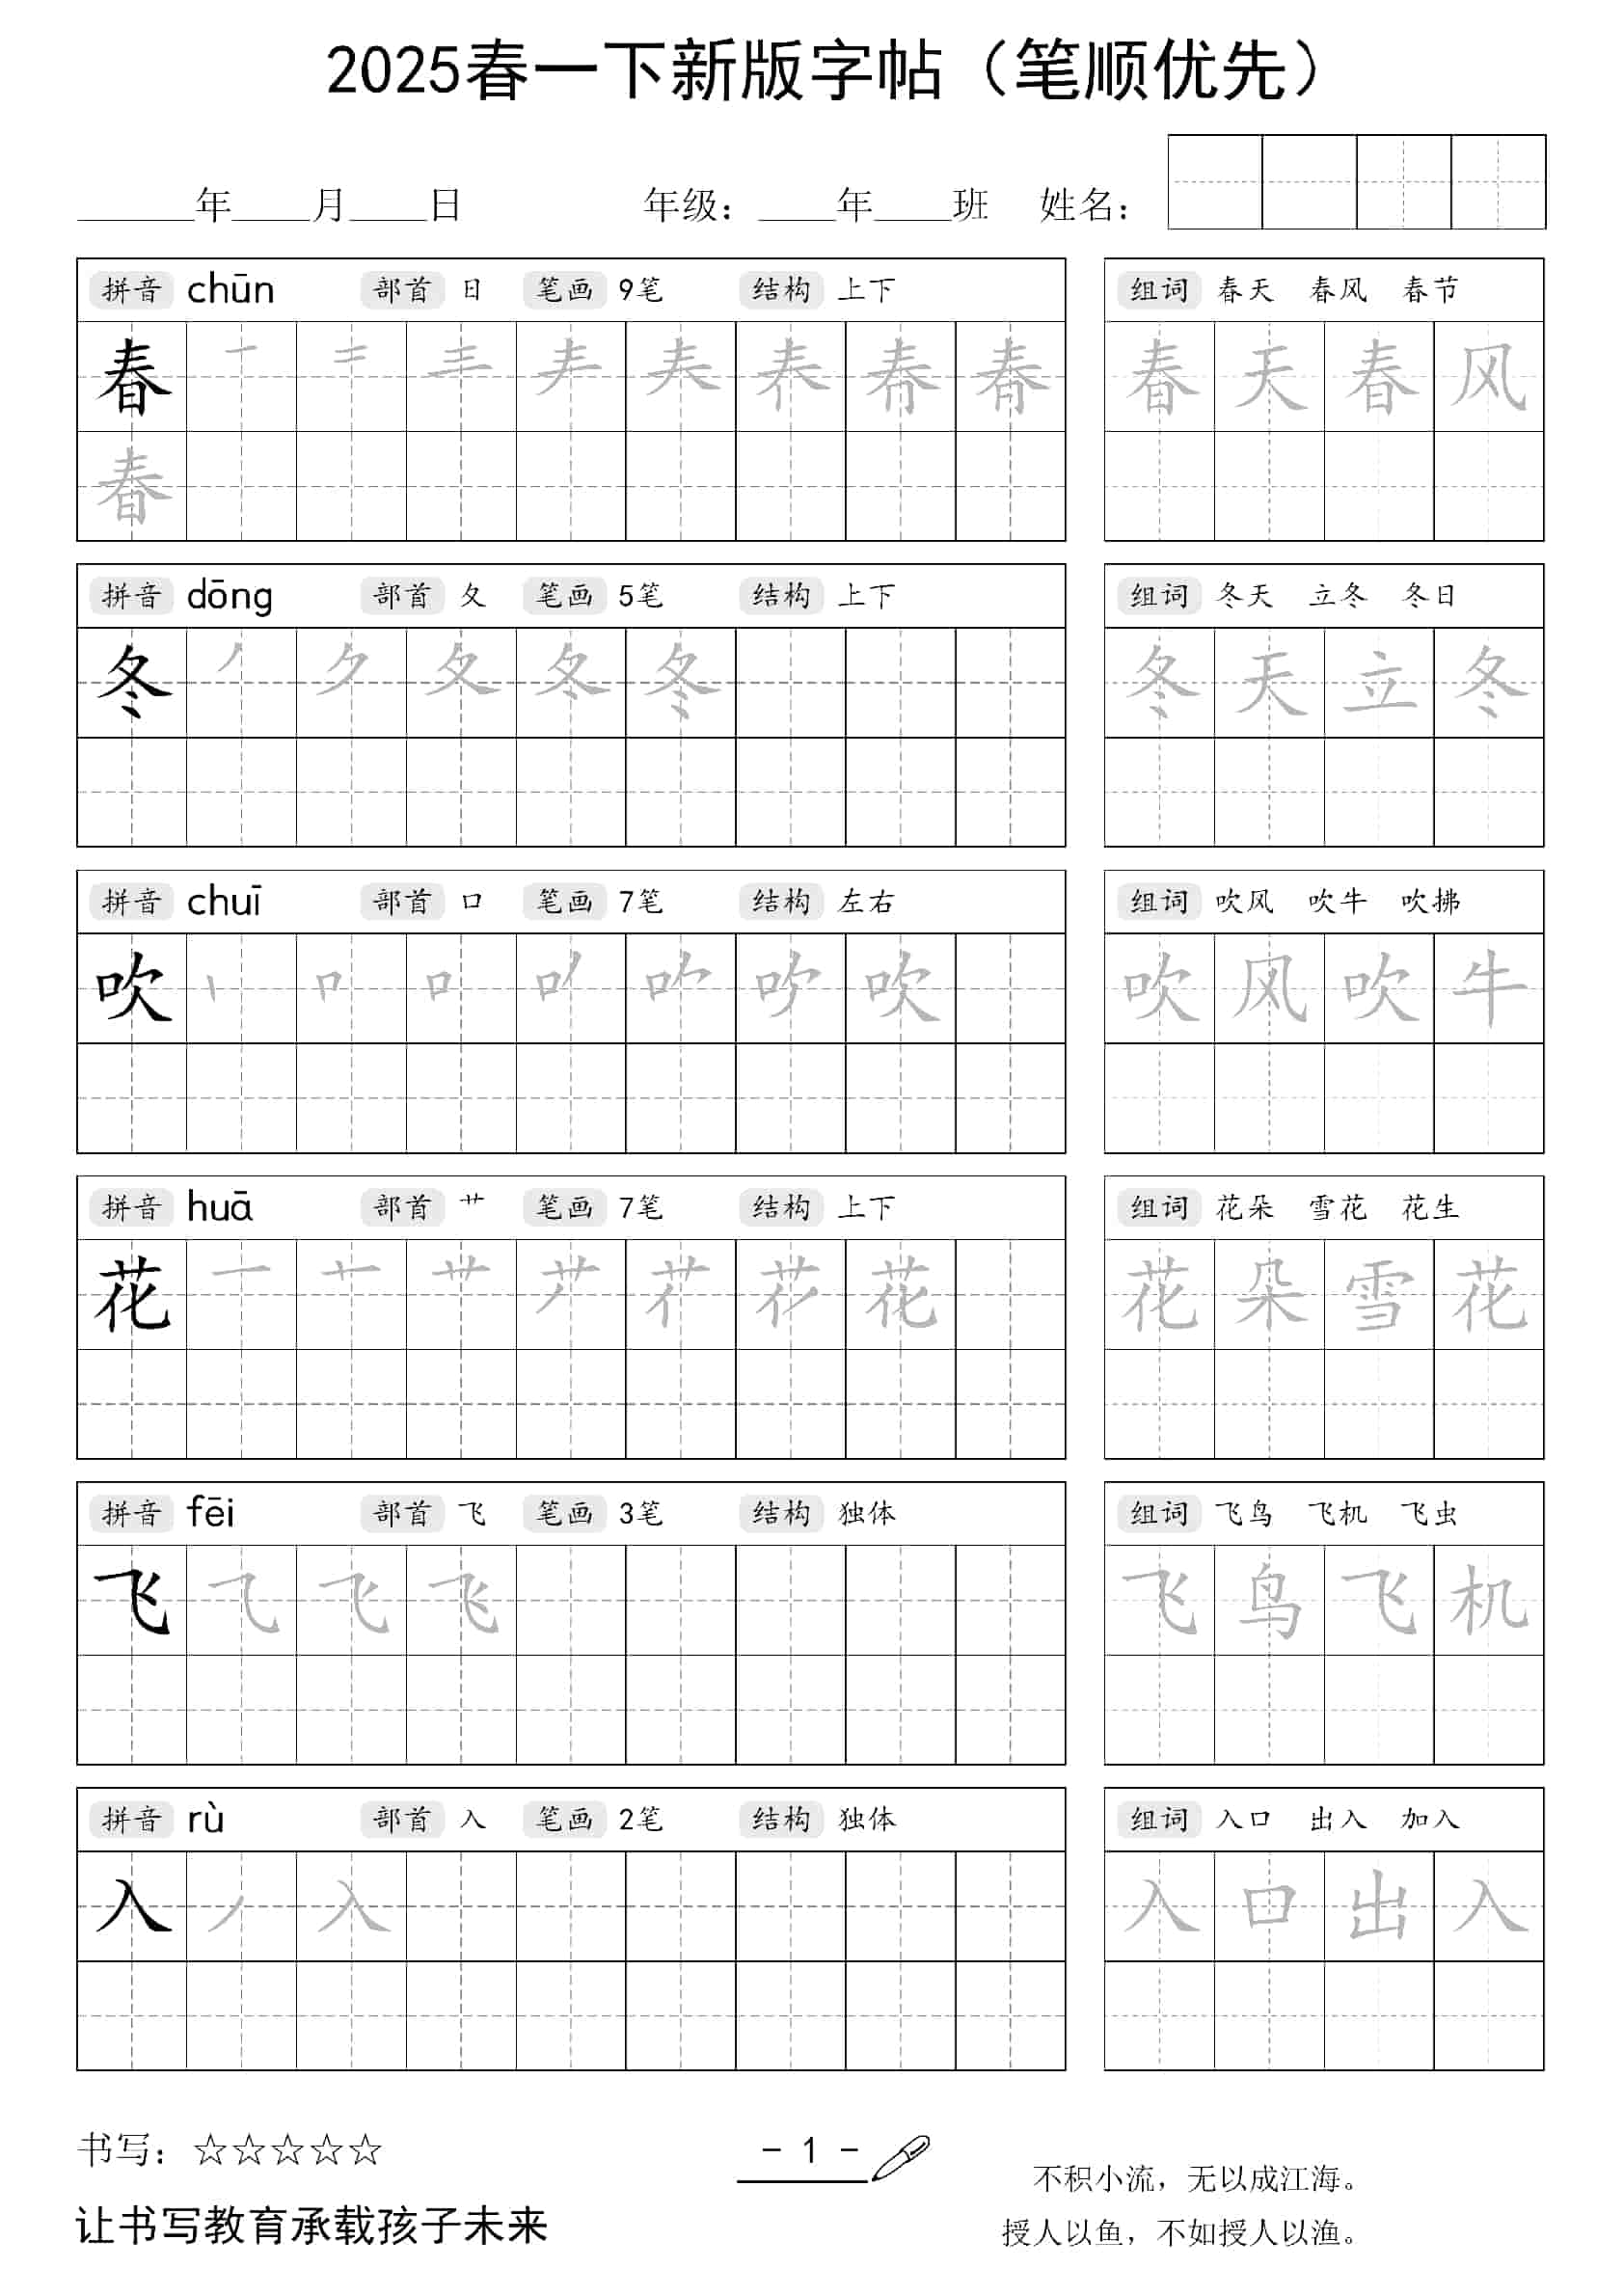 2025春一下新版字帖（笔顺优先）
______年____月____日 年级：____年____班 姓名：
拼音 chūn 部首 日 笔画 9笔 结构 上下 组词 春天 春风 春节
春 春天春风
春
拼音 dōng 部首 夂 笔画 5笔 结构 上下 组词 冬天 立冬 冬日
冬 冬天立冬
拼音 chuī 部首 口 笔画 7笔 结构 左右 组词 吹风 吹牛 吹拂
吹 吹风吹牛
拼音 huā 部首 艹 笔画 7笔 结构 上下 组词 花朵 雪花 花生
花 花朵雪花
拼音 fēi 部首 飞 笔画 3笔 结构 独体 组词 飞鸟 飞机 飞虫
飞 飞鸟飞机
拼音 rù 部首 入 笔画 2笔 结构 独体 组词 入口 出入 加入
入 入口出入
书写：☆☆☆☆☆
- 1 -
不积小流，无以成江海。
让书写教育承载孩子未来
授人以鱼，不如授人以渔。